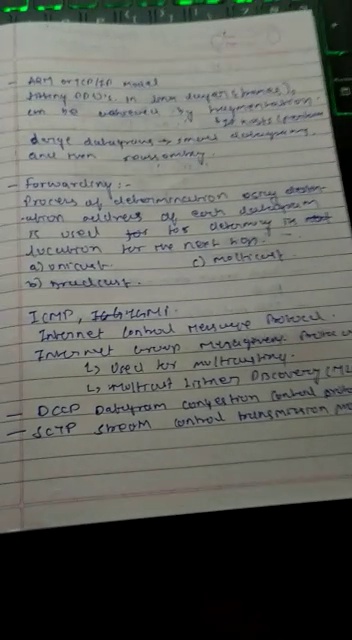 - ARM or TCP/IP model
fitting PDU's in link layer (frames),
can be achieved by fragmentation.
large datagrams → small datagrams
and then reassembly.
- Forwarding:-
Process of determination using
-ation address of each datagram
is used for determing its
location for the next hop.
a) unicast. c) multicast.
b) broadcast.
ICMP, IGMP.
Internet Control Message Protocol.
Internet Group Management
↳ Used for multicasting.
↳ Multicast Listner Discovery (ML
- DCCP Datagram congestion control
- SCTP Stream control transmission